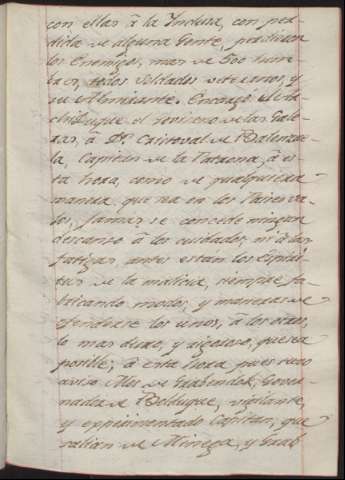 con ellas â la Inclusa, con per-
dida de alguna Gente, perdieron
los Enemigos, mas de 500 hom-
bres, todos Soldados veteranos, y
su Almirante. Encargó el Ar-
chiduque el govierno de las Gale-
ras, â Dn. Cristoval de Valenzue-
la, Capitan de la Patrona, â es-
ta hora, como de qualquiera
manera que sea en los Paises va-
jos, jamas se concede ningun
descanso â los cuidados, ni â las
fatigas, antes estan los espiri-
tus de la malicia, siempre fa-
bricando modos, y maneras de
ofenderse los unos, â los otros,
lo mas duro, y rigoroso, que sea
posible; â esta hora pues tuvo
aviso Mos de Grobendok, Gover-
nador de Bolduque, vigilante,
y experimentado Capitan, que
salian de , y Grab